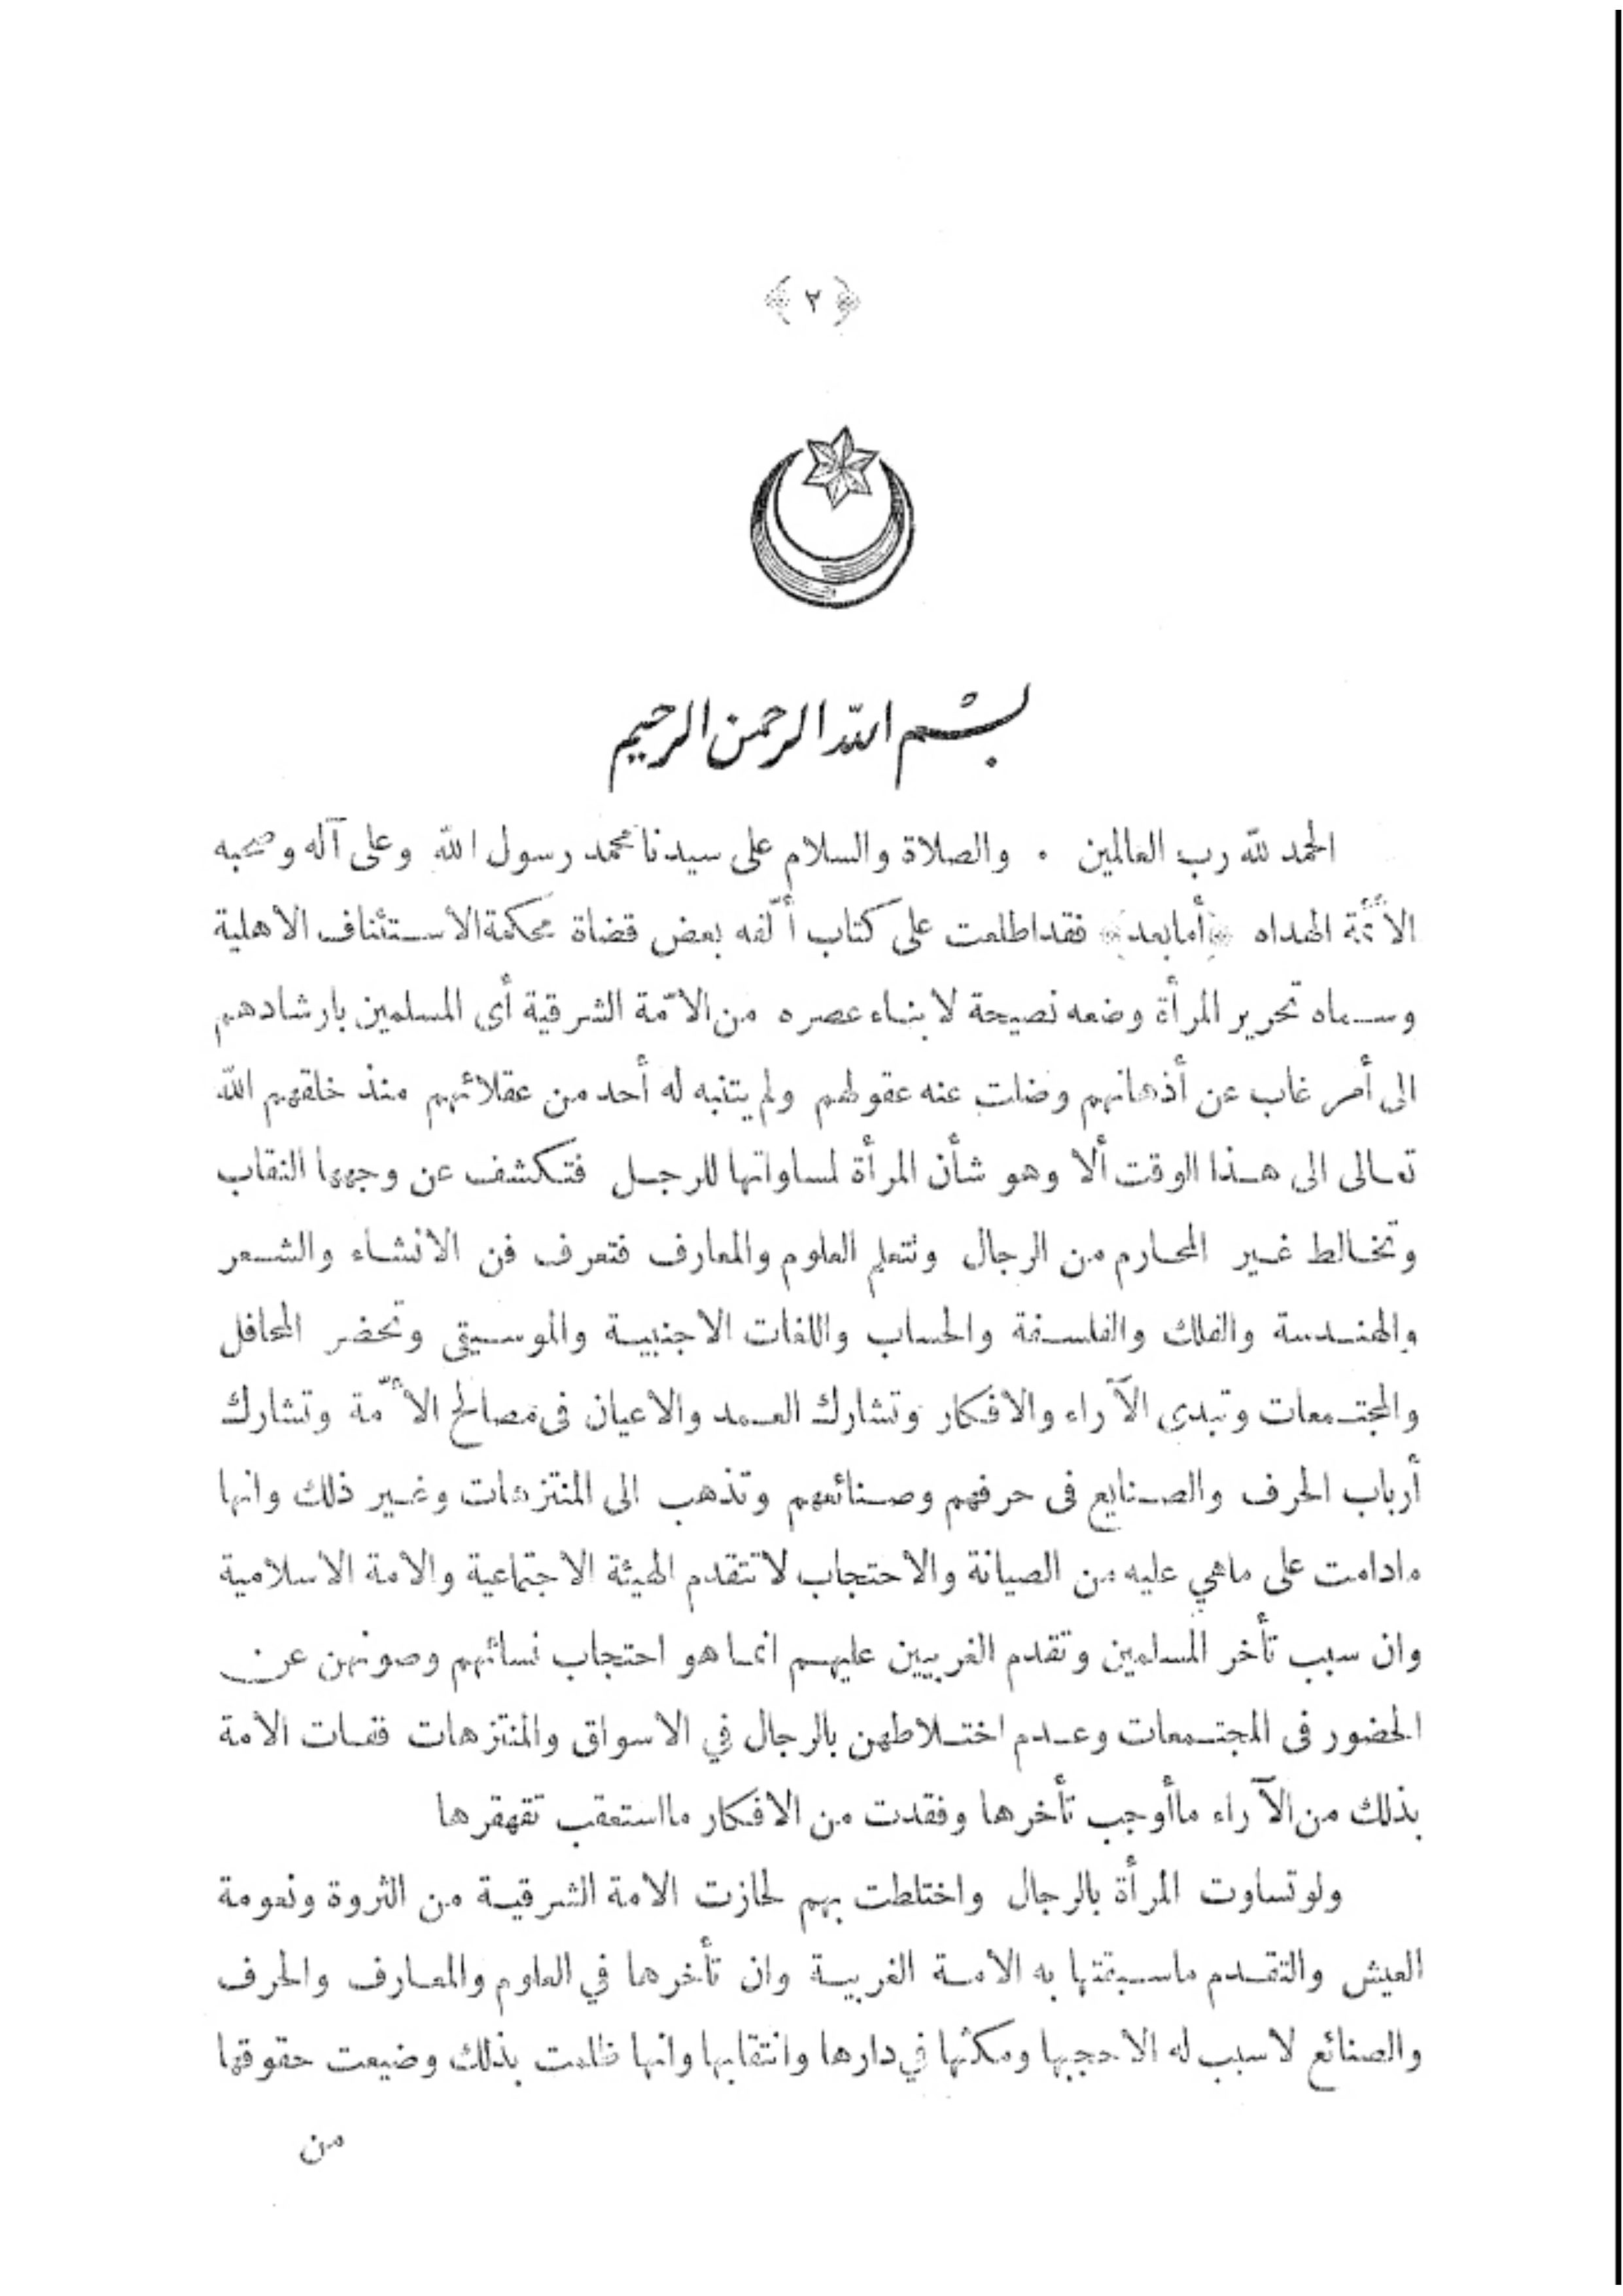 ﴿ ٢ ﴾
بسم الله الرحمن الرحيم
الحمد لله رب العالمين . والصلاة والسلام على سيدنا محمد رسول الله وعلى آله وصحبه
الأئمة الهداه ﴿أما بعد﴾ فقد اطلعت على كتاب ألّفه بعض قضاة محكمة الاستئناف الاهلية
وسماه تحرير المرأة وضعه نصيحة لابناء عصره من الامّة الشرقية أى المسلمين بارشادهم
الى أمر غاب عن أذهانهم وضلت عنه عقولهم ولم يتنبه له أحد من عقلائهم منذ خلقهم الله
تعالى الى هذا الوقت ألا وهو شأن المرأة لمساواتها للرجل فتكشف عن وجهها النقاب
وتخالط غير المحارم من الرجال وتتعلم العلوم والمعارف فتعرف فن الانشاء والشعر
والهندسة والفلك والفلسفة والحساب واللغات الاجنبية والموسيقى وتحضر المحافل
والمجتمعات وتبدى الآراء والافكار وتشارك العمد والاعيان فى مصالح الأمّة وتشارك
أرباب الحرف والصنايع فى حرفهم وصنائعهم وتذهب الى المنتزهات وغير ذلك وانها
مادامت على ماهي عليه من الصيانة والاحتجاب لا تتقدم الهيئة الاجتماعية والامة الاسلامية
وان سبب تأخر المسلمين وتقدم الغربيين عليهم انما هو احتجاب نسائهم وصونهن عن
الحضور فى المجتمعات وعدم اختلاطهن بالرجال في الاسواق والمنتزهات ففات الامة
بذلك من الآراء ماأوجب تأخرها وفقدت من الافكار مااستعقب تقهقرها
ولو تساوت المرأة بالرجال واختلطت بهم لحازت الامة الشرقية من الثروة ونعومة
العيش والتقدم ماسبقتها به الامة الغربية وان تأخرها في العلوم والمعارف والحرف
والصنائع لاسبب له الاحجبها ومكثها في دارها وانتقابها وانها ظلمت بذلك وضيعت حقوقها
من